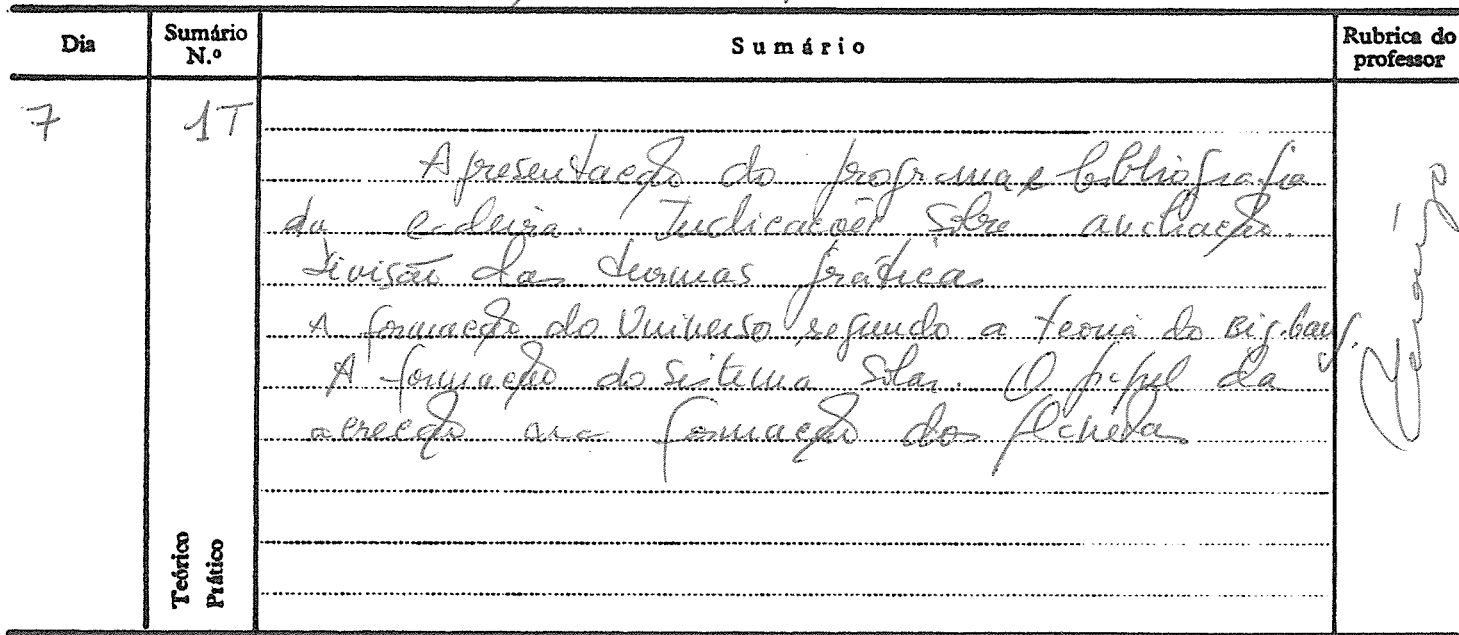 Dia
Sumário N.º
Sumário
Rubrica do professor
7
1T
Apresentação do programa e bibliografia
da cadeira. Indicações sobre avaliação.
Divisão das turmas práticas
A formação do Universo segundo a teoria do Big-bang.
A formação do sistema solar. O papel da
acreção na formação dos planetas
Teórico
Prático